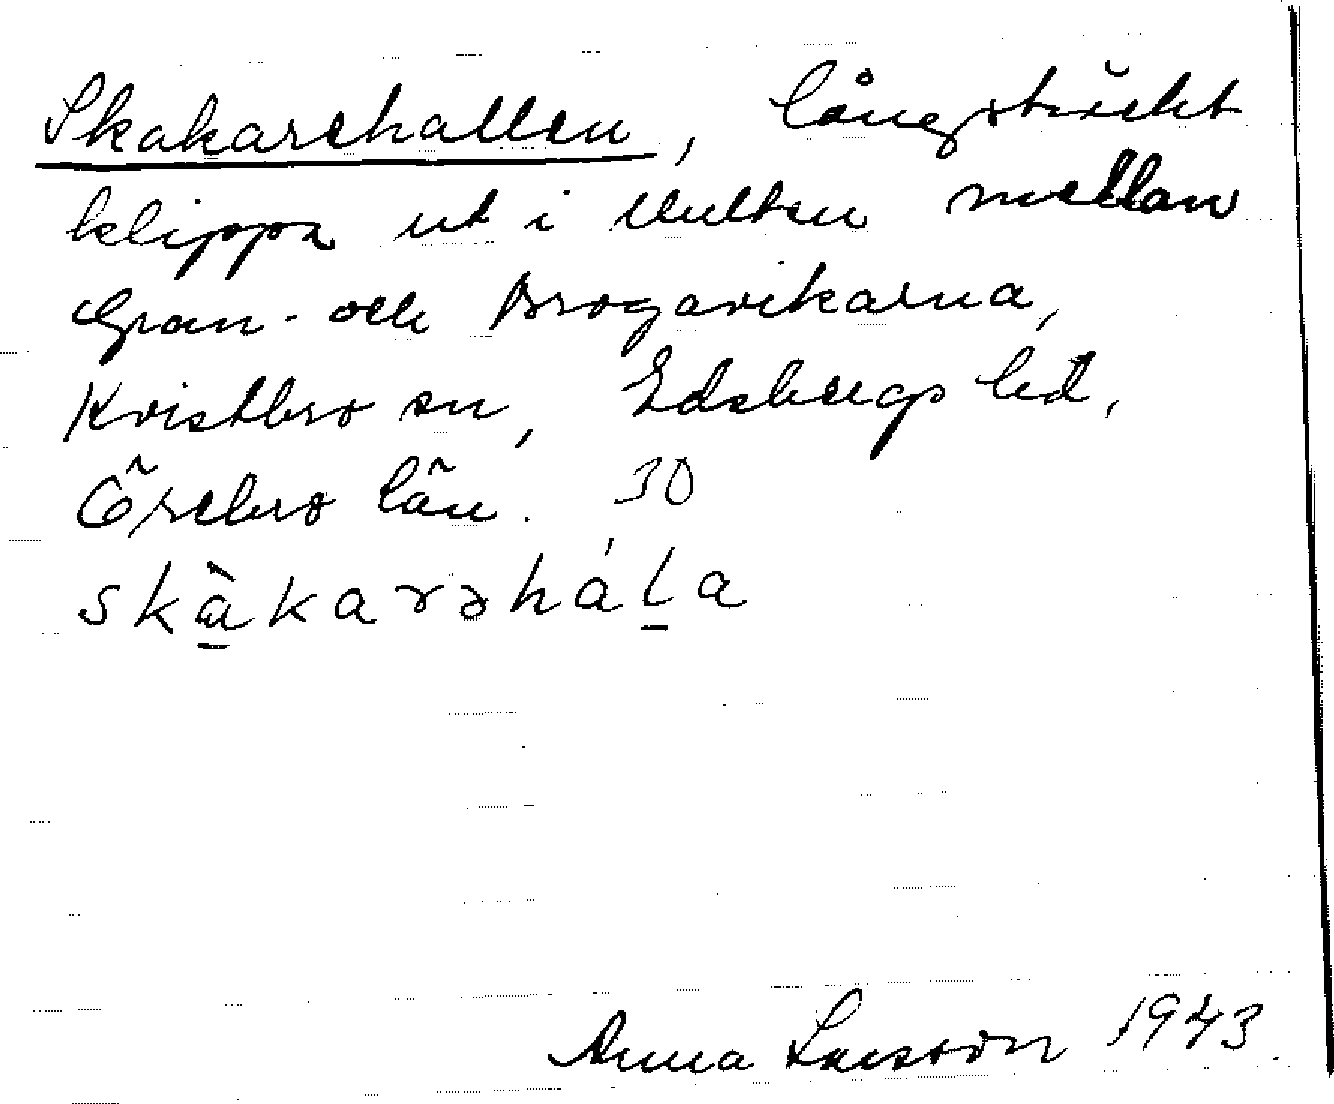 Skakarehallen, långsträckt
klippa ut i Multen mellan
Gran- och Brogavikarna,
Kvistbro sn, Edsbergs hd,
Örebro län. 30
skàkarəháḷa
Anna Larsson 1943.